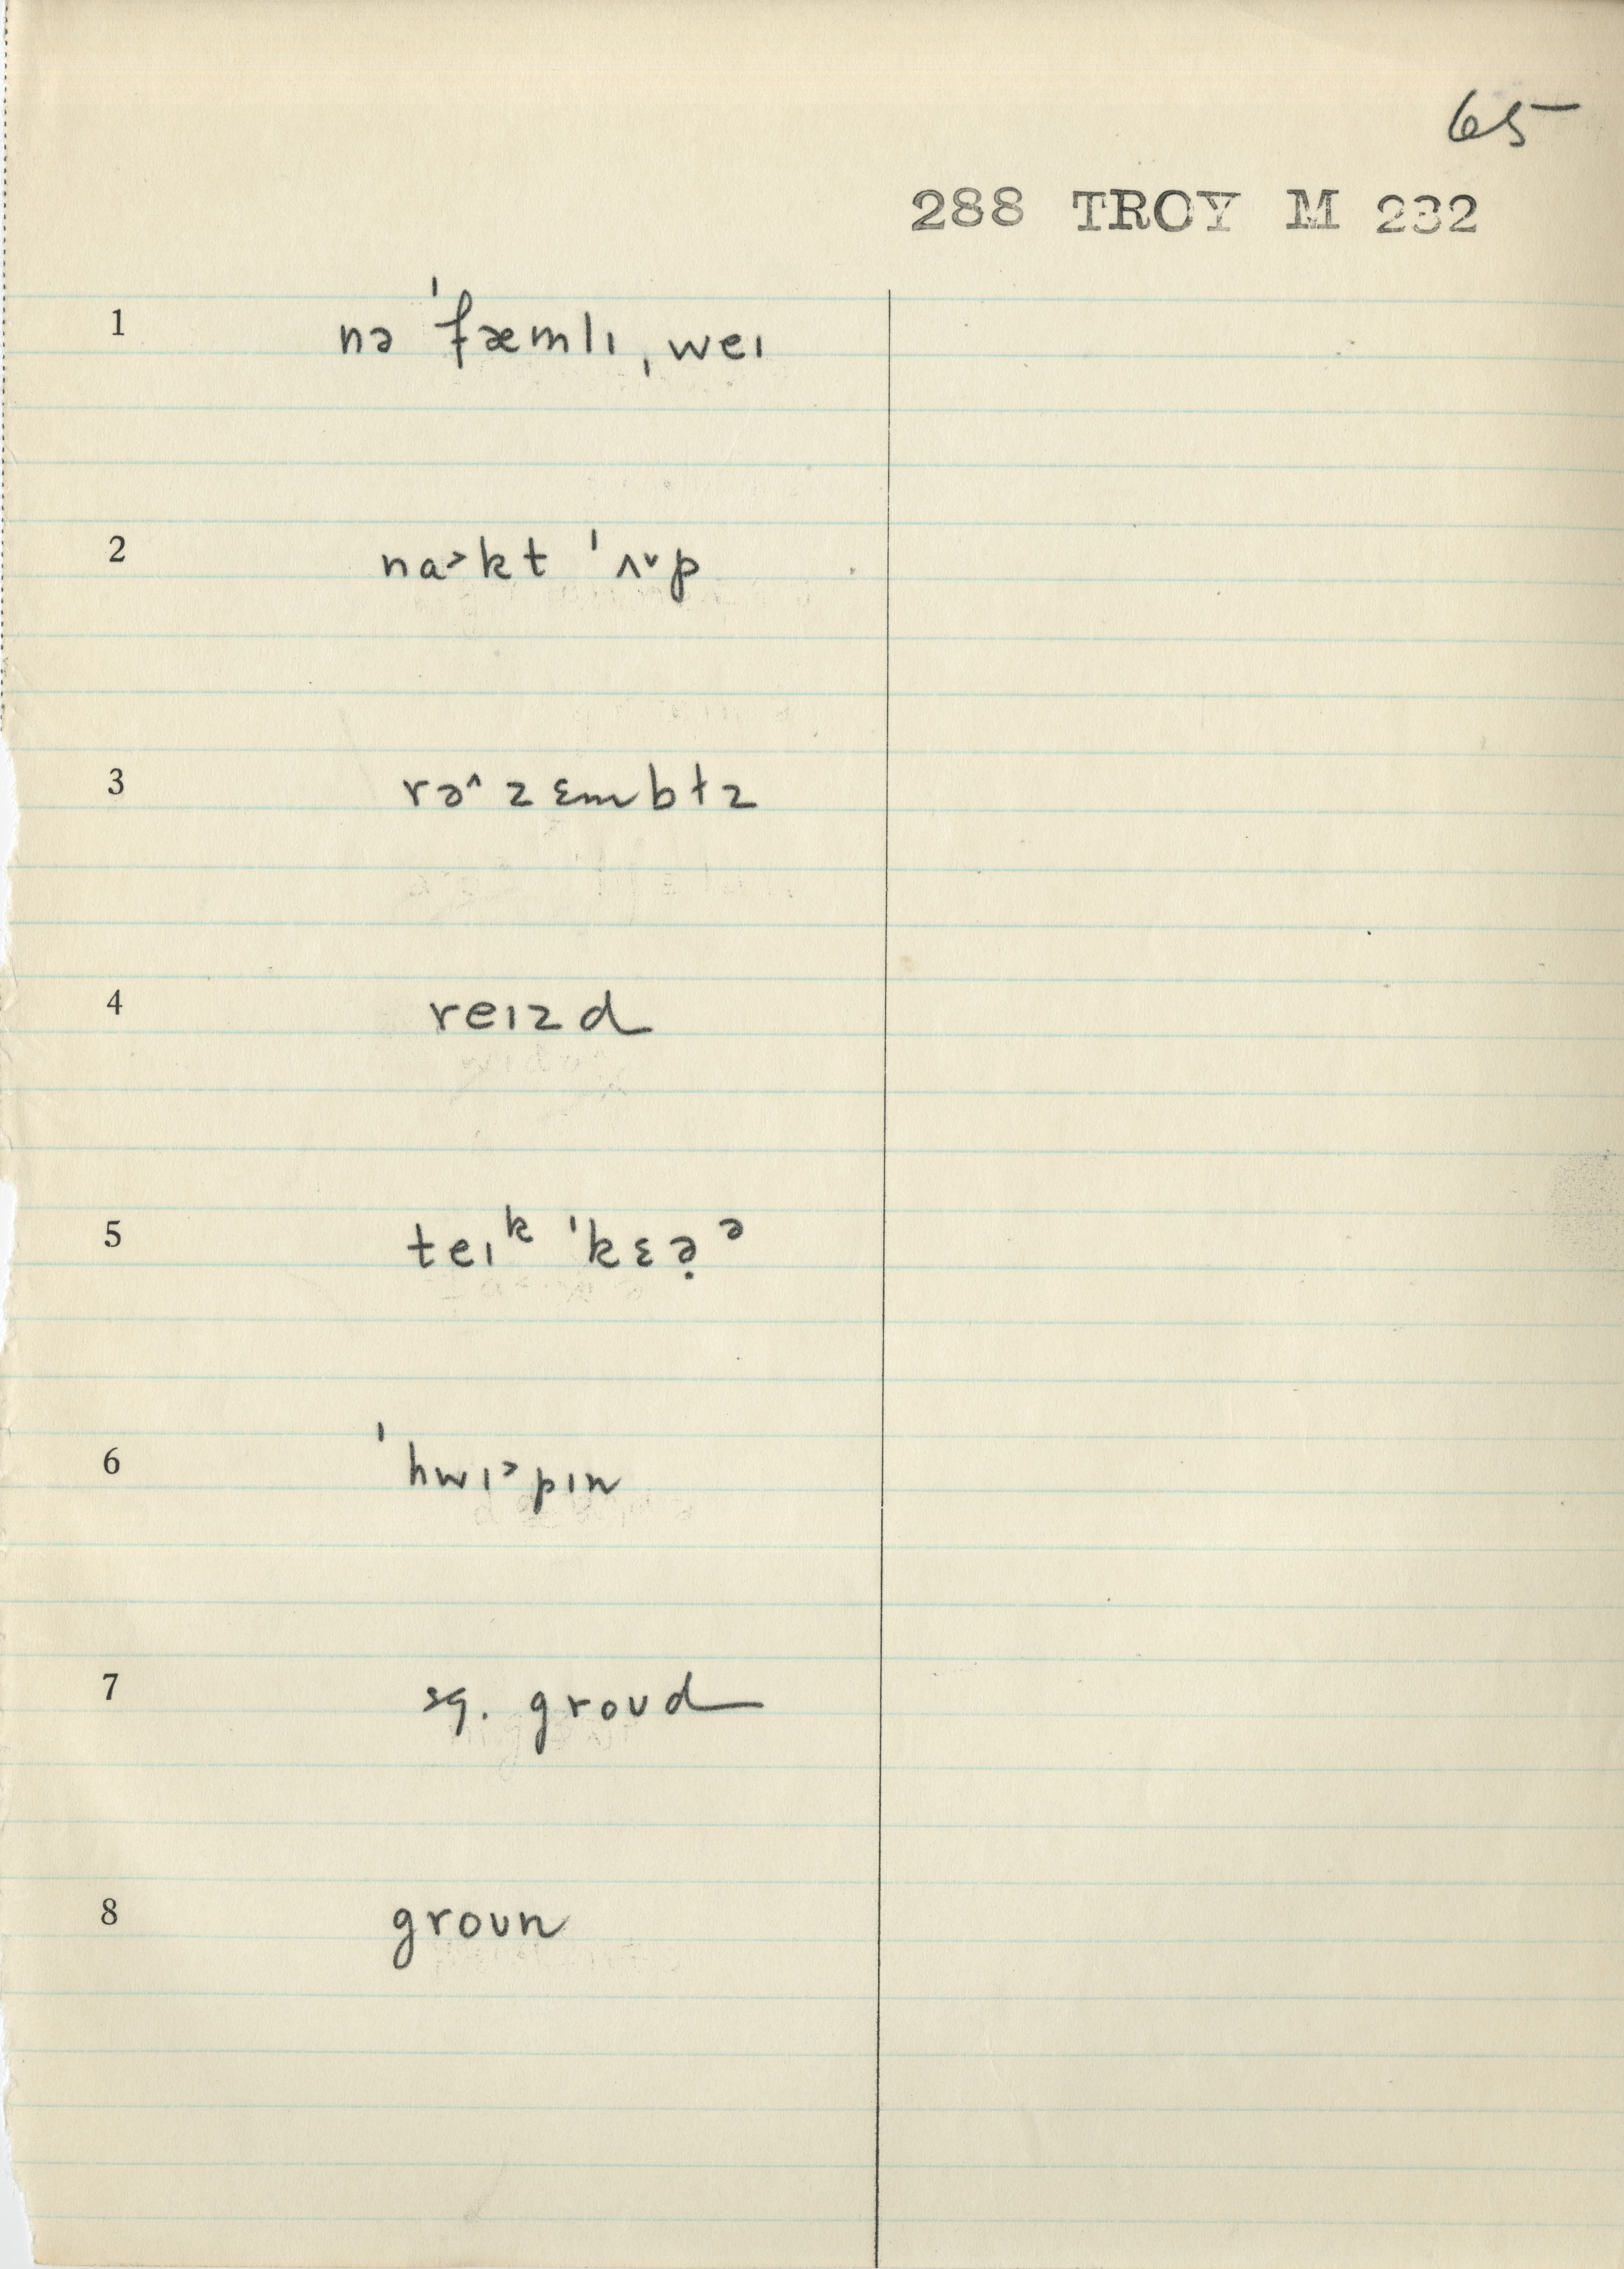 65
288 TROY M 232
1 nə ˈfæmlɪ ˌweɪ
2 na˃kt ˈʌ˅p
3 rə˄zɛmbɫz
4 reɪzd
5 teɪᵏ ˈkɛə̣ᵊ
6 ˈhwɪ˃pɪn
7 sq. groʊd
8 groʊn